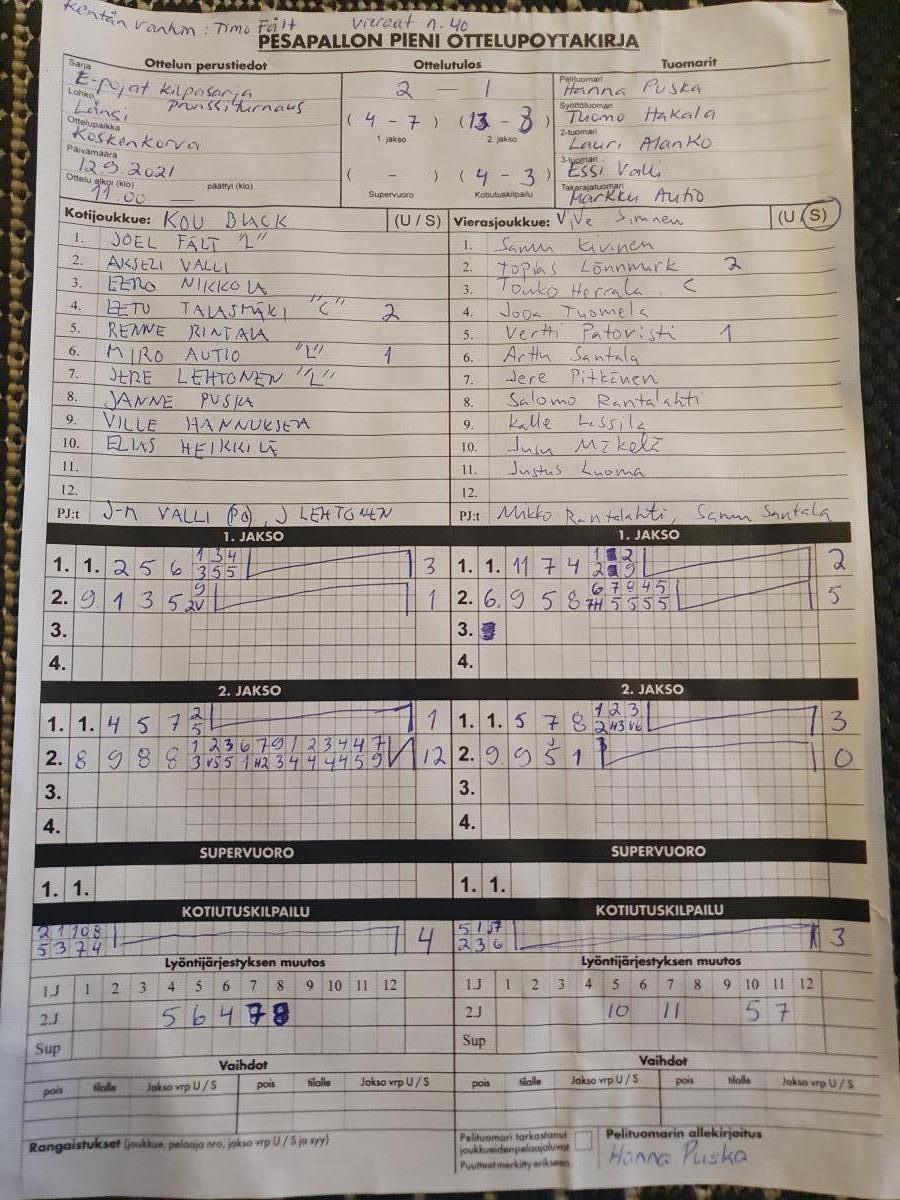 Kentän vanhin : Timo Fält   vieraat n. 40
PESÄPALLON PIENI OTTELUPÖYTÄKIRJA
Ottelun perustiedot Ottelutulos Tuomarit
Sarja
E-pojat kilpasarja
Lohko
Länsi pronssiturnaus
Ottelupaikka
Koskenkorva
Päivämäärä
12.9.2021
Ottelu alkoi (klo) päättyi (klo)
11.00 —
2 — 1
( 4 - 7 ) ( 13 - 3 )
1. jakso 2. jakso
( - ) ( 4 - 3 )
Supervuoro Kotiutuskilpailu
Pelituomari
Hanna Puska
Syöttötuomari
Tuomo Hakala
2-tuomari
Lauri Alanko
3-tuomari
Essi Valli
Takarajatuomari
Markku Autio
Kotijoukkue: KOU BLACK (U / S)
1. JOEL FÄLT "L"
2. AKSELI VALLI
3. EERO NIKKOLA
4. EETU TALASMÄKI "C" 2
5. RENNE RINTALA
6. MIRO AUTIO "L" 1
7. JERE LEHTONEN "L"
8. JANNE PUSKA
9. VILLE HANNUKSELA
10. ELIAS HEIKKILÄ
11.
12.
PJ:t J-M VALLI (PJ), J LEHTONEN
Vierasjoukkue: ViVe Sininen (U / S)
1. Samu Kivinen
2. Topias Lönnmark 2
3. Touko Herrala . C
4. Joda Tuomela
5. Vertti Patovisti 1
6. Arttu Santala
7. Jere Pitkänen
8. Salomo Rantalahti
9. Kalle Lassila
10. Jusu Mäkelä
11. Justus Luoma
12.
PJ:t Mikko Rantalahti, Samu Santala
1. JAKSO
1. 1. 2 5 6 1 3 4 3
3 5 5
2. 9 1 3 5 9 1
2V
3.
4.
1. JAKSO
1. 1. 11 7 4 1 2 2
2 9
2. 6. 9 5 8 6 7 9 4 5 5
7H 5 5 5 5
3.
4.
2. JAKSO
1. 1. 4 5 7 2 1
5
2. 8 9 8 8 1 2 3 6 7 9 1 2 3 4 4 7 12
3 V5 5 1 H2 3 4 4 4 4 5 9
3.
4.
2. JAKSO
1. 1. 5 7 8 1 2 3 3
2 H3 V6
2. 9. 9 5 1 0
3.
4.
SUPERVUORO
1. 1.
SUPERVUORO
1. 1.
KOTIUTUSKILPAILU
2 1 10 8 4
5 3 7 4
KOTIUTUSKILPAILU
5 1 3
2 3 6
Lyöntijärjestyksen muutos
1.J 1 2 3 4 5 6 7 8 9 10 11 12
2.J 5 6 4 7 8
Sup
Lyöntijärjestyksen muutos
1.J 1 2 3 4 5 6 7 8 9 10 11 12
2.J 10 11 5 7
Sup
Vaihdot
pois tilalle Jakso vrp U / S pois tilalle Jakso vrp U / S
Vaihdot
pois tilalle Jakso vrp U / S pois tilalle Jakso vrp U / S
Rangaistukset (joukkue, pelaaja nro, jakso vrp U / S ja syy)
Pelituomari tarkastanut
joukkueiden pelaajaluvat
Puutteet merkitty erikseen.
Pelituomarin allekirjoitus
Hanna Puska